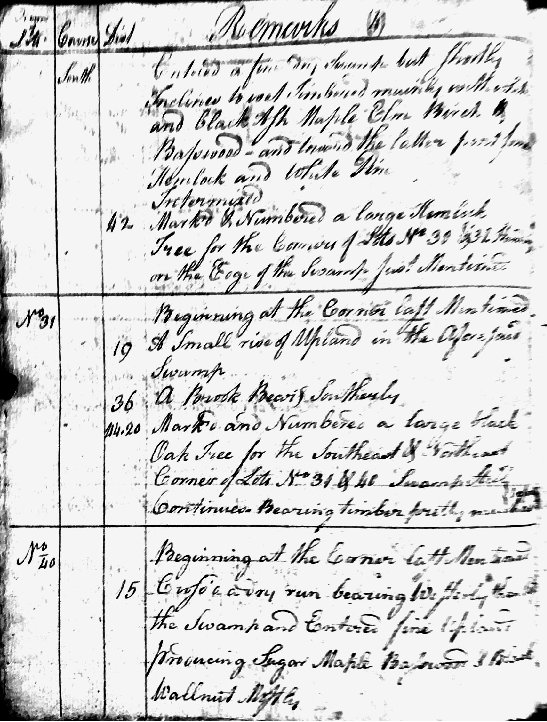 No. Course Dist Remarks
South Entered a fine dry Swamp but Shortly
Inclines to wet Timbered mainly with
and black Ash Maple Elm Birch &
Basswood - and toward the latter part fine
Hemlock and White Pine
Intermixed
42 Markd & Numbered a large Hemlock
Tree for the Corner of Lots No 30 & 31
on the Edge of the Swamp Just Mentioned
No 31 Beginning at the Corner last Mentioned
19 A Small rise of Upland in the Aforesaid
Swamp
36 A Brook Bears Southerly
44.20 Markd and Numbered a large black
Oak Tree for the Southeast & Northeast
Corner of Lots No 31 & 40 Swamp Still
Continues Bearing timber pretty much
No 40 Beginning at the Corner last Mentioned
15 a dry run bearing Westerly
the Swamp and Entered fine Upland
producing Sugar Maple Basswood &
Wallnut Mostly